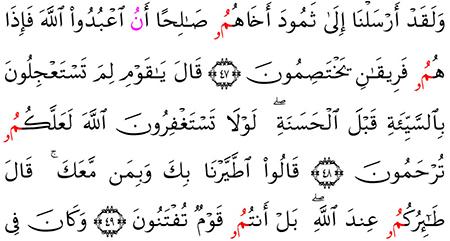 وَلَقَدْ أَرْسَلْنَا إِلَىٰ ثَمُودَ أَخَاهُمُۥ صَـٰلِحًا أَنُ اَعْبُدُواْ اللَّهَ فَإِذَا
هُمُۥ فَرِيقَـٰنِ يَخْتَصِمُونَ ٤٧ قَالَ يَـٰقَوْمِ لِمَ تَسْتَعْجِلُونَ
بِالسَّيِّئَةِ قَبْلَ الْحَسَنَةِ ۖ لَوْلَا تَسْتَغْفِرُونَ اللَّهَ لَعَلَّكُمُۥ
تُرْحَمُونَ ٤٨ قَالُواْ اطَّيَّرْنَا بِكَ وَبِمَن مَّعَكَ ۚ قَالَ
طَـٰٓئِرُكُمُۥ عِندَ اللَّهِ ۖ بَلْ أَنتُمُۥ قَوْمٌ تُفْتَنُونَ ٤٩ وَكَانَ فِى